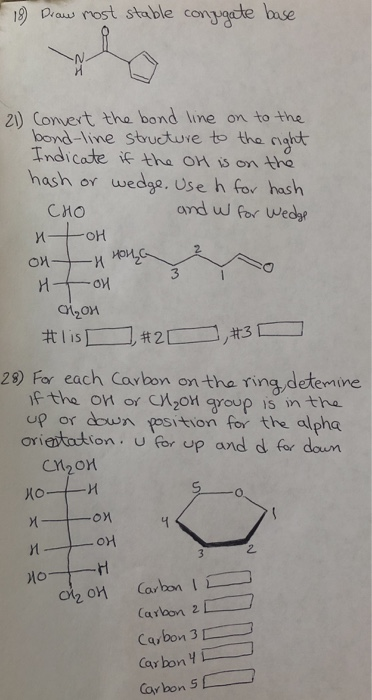 18) Draw most stable conjugate base
O
N
H
21) Convert the bond line on to the
bond-line structure to the right
Indicate if the OH is on the
hash or wedge. Use h for hash
and w for wedge
CHO
H OH
OH H
H OH
CH2OH
HOH2C 3 2 1 O
#1 is , #2 , #3
28) For each Carbon on the ring, detemine
if the OH or CH2OH group is in the
up or down position for the alpha
orientation. u for up and d for down
CH2OH
HO H
H OH
H OH
HO H
CH2OH
5 O
4 1
3 2
Carbon 1
Carbon 2
Carbon 3
Carbon 4
Carbon 5